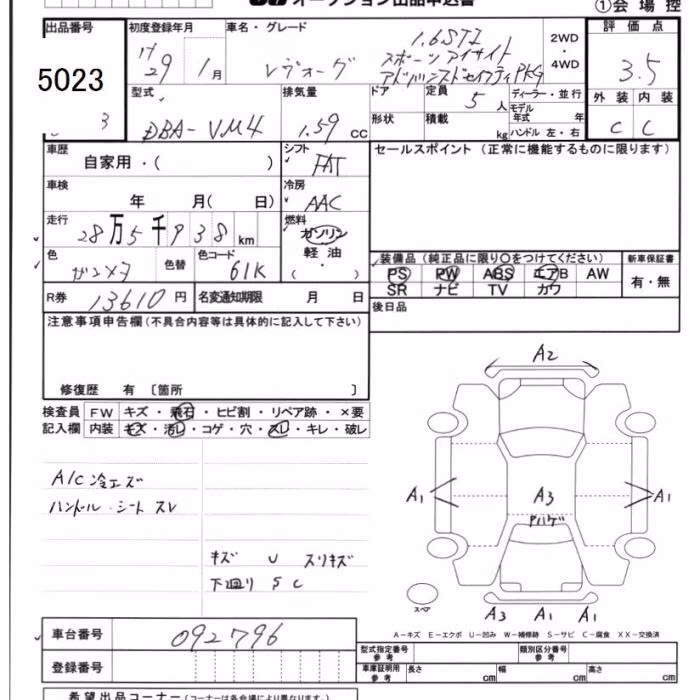 オークション出品申込書
①会場控
出品番号
5023
3
初度登録年月
H 29 年 1 月
車名・グレード
レヴォーグ
1.6STI
スポーツアイサイト
アドバンスドセイフティPKG
2WD
・
4WD
評価点
3.5
外装 内装
C C
型式
DBA-VM4
排気量
1.59 CC
ドア
定員 5 人
ディーラー・並行
モデル年式 年
形状
積載 kg
ハンドル 左・右
車歴
自家用・( )
シフト
FAT
セールスポイント (正常に機能するものに限ります)
車検
年 月( 日)
冷房
AAC
走行
28万5千938km
燃料
ガソリン
軽油
・
( )
色
ガンメタ
色替
色コード
61K
装備品 (純正品に限り○をつけてください)
新車保証書
PS PW ABS エアB AW
SR ナビ TV カワ
有・無
R券 13610 円
名変通知期限 月 日
後日品
注意事項申告欄 (不具合内容等は具体的に記入して下さい)
修復歴 有 〔箇所 〕
検査員
記入欄
FW キズ・飛石・ヒビ割・リペア跡・×要
内装 キズ・汚レ・コゲ・穴・スレ・キレ・破レ
A/C 冷エズ
ハンドル・シート スレ
キズ U スリキズ
下回り S C
A2
A1
A3
アハゲ
A1
スペア
A3 A1 A1
A-キズ E-エクボ U-凹み W-補修跡 S-サビ C-腐食 XX-交換済
車台番号 092796
登録番号
型式指定番号
参考
類別区分番号
参考
車庫証明用
参考
長さ cm
幅 cm
高さ cm
希望出品コーナー (コーナーは各会場により異なります)